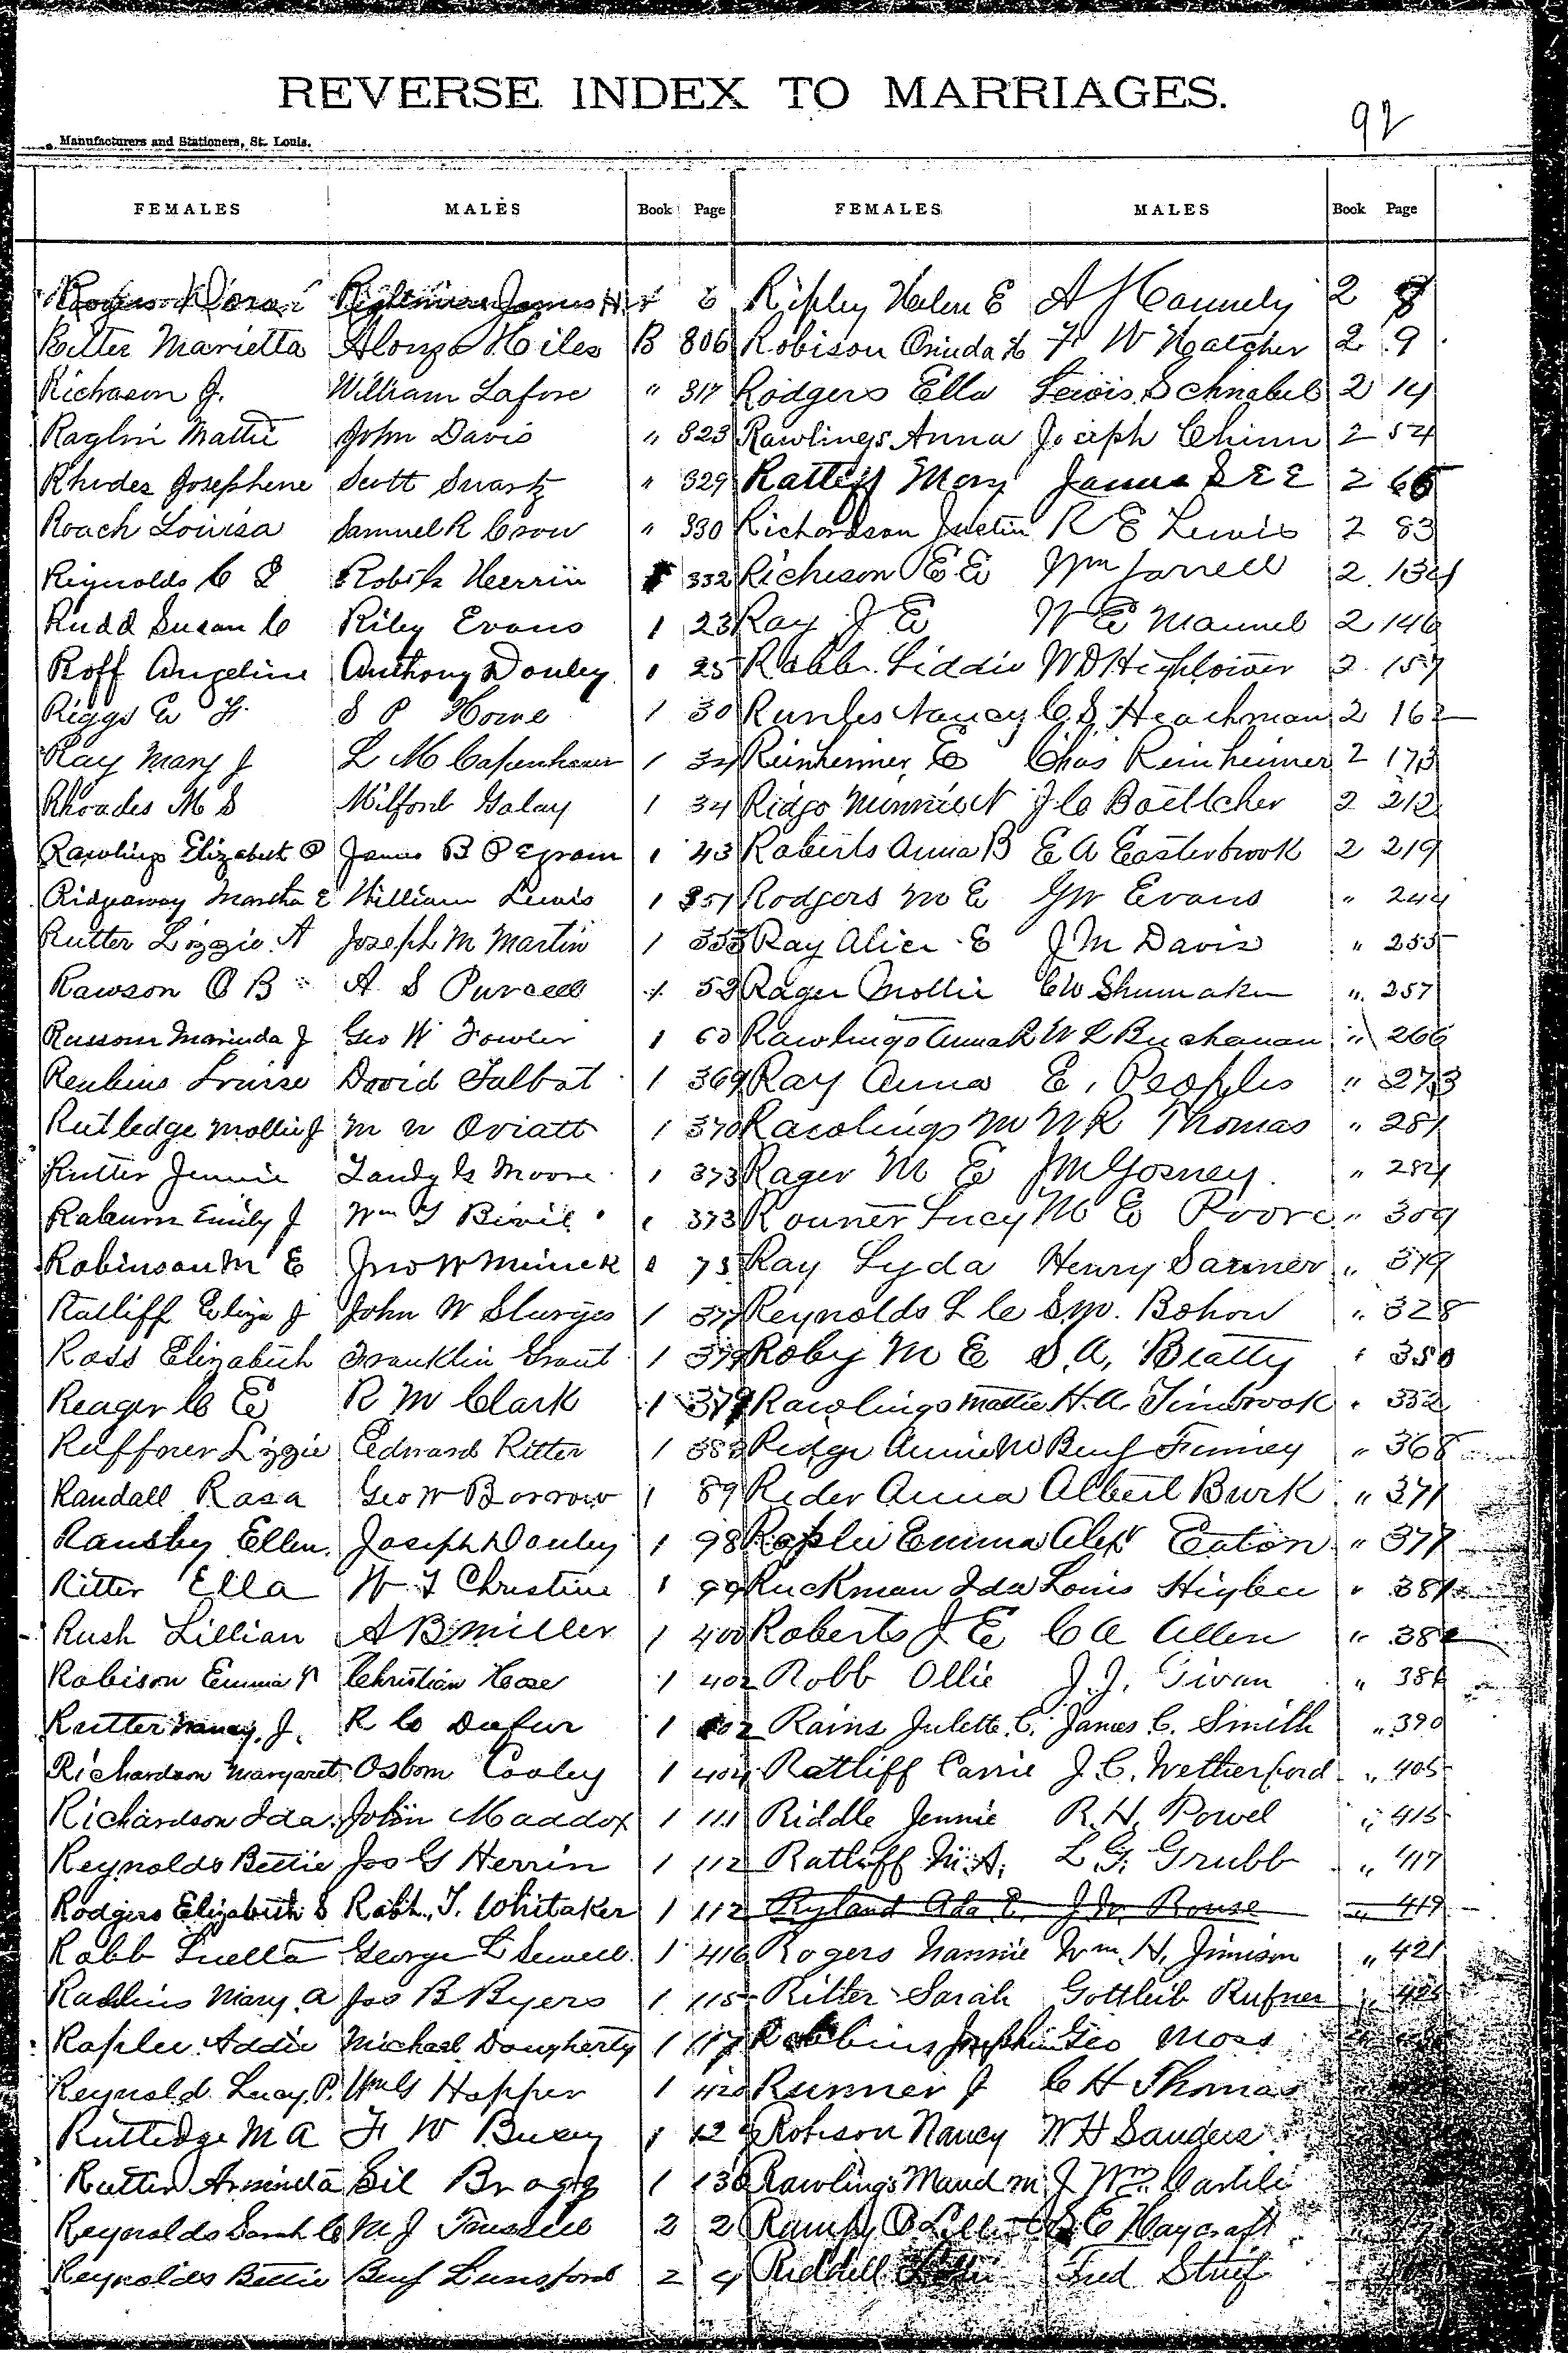 REVERSE INDEX TO MARRIAGES.
92
Manufacturers and Stationers, St. Louis.
FEMALES MALES Book Page FEMALES MALES Book Page
Rogers Dora James H 6
Ritter Marietta Alonzo Hiles B 806
Richason J. William Lafore " 317
Raglin Mattie John Davis " 323
Rhodes Josephene Scott Swartz " 329
Roach Louisa Samuel R Crow " 330
Reynolds C S Herrin 332
Rudd Susan C Riley Evans 1 23
Roff Angeline Anthony Donley 1 25
Riggs E F. S P Howe 1 30
Ray Mary J L M Capenhaver 1 34
Rhoades M S Milford Galay 1 34
Rawlings Elizabeth O James B Pegram 1 43
Ridgeaway Martha E William Lewis 1 351
Rutter Lizzie A Joseph M Martin 1 353
Rawson O B A. S Purcell 1 52
Russom Marinda J Geo W Fowler 1 60
Reubins Louise David Talbot 1 369
Rutledge Mollie J M N Oviatt 1 370
Rutter Jennie Landy G Moore 1 373
Raburn Emily J Wm T Bivil 1 373
Robinson M E Jno W Minick 1 75
Ratliff Eliza J John W Sturges 1 377
Ross Elizabeth Franklin Grant 1 379
Reager C E R M Clark 1 379
Ruffner Lizzie Edward Ritter 1 383
Randall Rosa Geo W Borrow 1 89
Ransby Ellen. Joseph Donley 1 98
Ritter Ella W T Christine 1 99
Rush Lillian A B Miller 1 400
Robison Emma Christian Hose 1 402
Rutter Nancy J. R C Dufur 1 402
Richardson Margaret Osborn Cooley 1 404
Richardson Ida John Maddox 1 111
Reynolds Bettie Jos G Herrin 1 112
Rodgers Elizabeth S Robt. T. Whitaker 1 112
Robb Luella George L Sewell 1 416
Robbins Mary A Jos B Byers 1 115
Raplee Addie Michael Dougherty 1 117
Reynold Lucy P. Wm G Hopper 1 420
Rutledge M A F W Busey 1 129
Rutter Arminda Gil Bragg 1 130
Reynolds Sarah C M J Trussell 2 2
Reynolds Bettie Benj Lunsford 2 4
Ripley Helen E A J Cannely 2 8
Robison Orinda H F W Hatcher 2 9
Rodgers Ella Lewis Schnabel 2 14
Rawlings Anna Joseph Chinn 2 54
Ratliff Mary James S E E 2 66
Richardson Justin R E Lewis 2 83
Richeson E E Wm Jarrell 2 134
Ray J E W E Manuel 2 146
Robb Liddie W D Highlower 2 157
Runles Nancy C. S. Heachman 2 162
Reinheimer E Chas Reinheimer 2 173
Ridgo Minnie N J C Boettcher 2 212
Roberts Anna B E A Easterbrook 2 219
Rodgers M E G W Evans " 244
Ray Alice E J M Davis " 255
Rager Mollie C W Shumaker " 257
Rawlings Anna R W L Buchanan " 266
Ray Anna E, Peoples " 273
Rawlings M W R Thomas " 281
Rager M E J M Gosney " 284
Rouner Lucy M E Poore " 309
Ray Lyda Henry Sarner " 319
Reynolds L C S. M. Bohon " 328
Roby M E S. A, Beatty " 350
Rawlings Mattie H. A. Timbrook " 352
Ridge Annie M Benj Finney " 368
Rider Anna Albert Burk " 371
Raplee Emma Alex Eaton " 377
Ruckman Ida Louis Higbee " 381
Roberts J E C A Allen " 382
Robb Ollie J. J. Givan " 386
Rains Julette C. James C. Smith " 390
Ratliff Carrie J. C. Wetherford " 405
Riddle Jennie R. H. Powel " 415
Ratliff M. A. L. G. Grubb " 417
Ryland Ada E. J. W. Rouse " 419
Rogers Nannie Wm. H. Jimison " 421
Ritter Sarah Gottleib Rufner
Robbins Josephine Geo Moss
Runner J C H Thomas
Robison Nancy W H Sanders
Rawlings Maud M. J Wm
Rumpy S E Haycraft
Riddell Fred Stuif